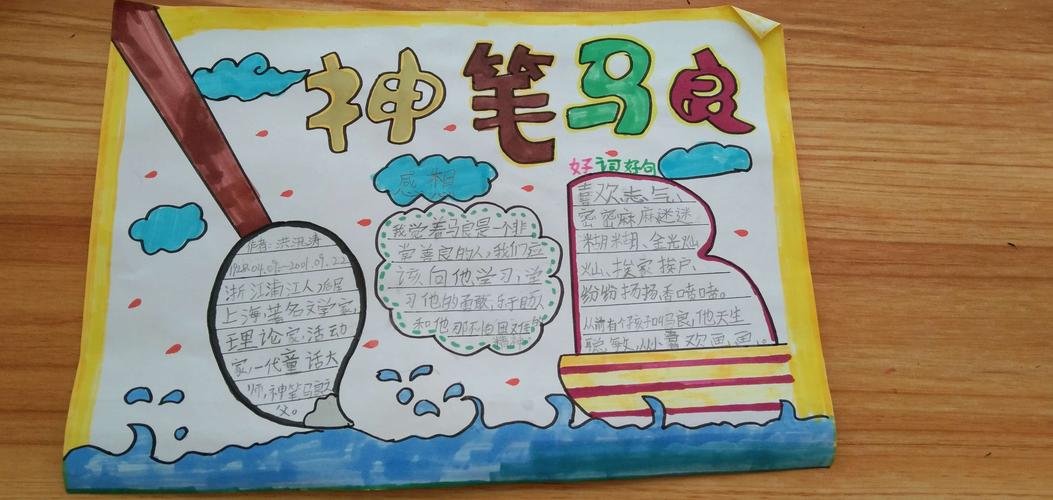 神笔马良
作者:洪汛涛
1928.04.09-2001.09.22
浙江浦江人,
上海,著名文学家,
理论家,活动
家,一代童话大
师,神笔马良之
父。
感想
我觉着马良是一个非
常善良的人,我们应
该向他学习,学
习他的勇敢,乐于助人
和他那不怕困难的
精神
好词好句
喜欢、志气、
密密麻麻、迷迷
糊糊、金光灿
灿、挨家挨户、
纷纷扬扬、香喷喷。
从前有个孩子叫马良,他天生
聪敏,从小喜欢画画。